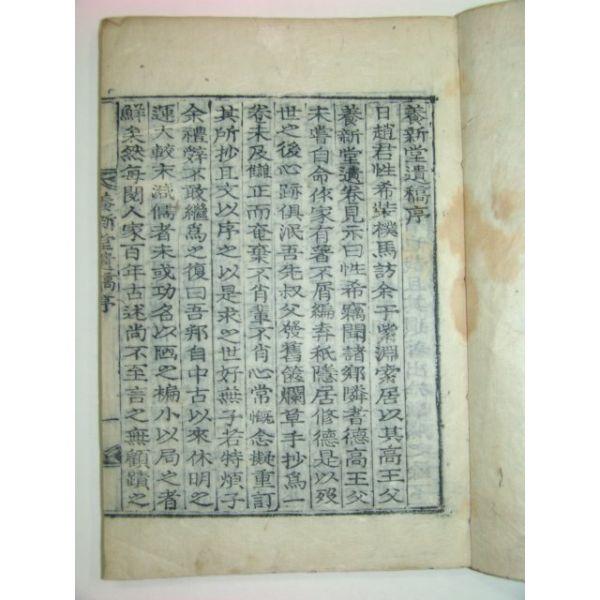 養新堂遺稿序
日趙君性希柴機馬訪余于紫淵索居以其高王父
養新堂遺卷見示曰性希竊聞諸鄉隣耆德高王父
未嘗自命作家有著不屑編弆秖隱居修德是以歿
世之後心跡俱泯吾先叔父發舊篋爛草手抄爲一
卷未及讎正而奄棄不肖輩不肖心常慨念擬重訂
其所抄且丐文以序之以是求之世好蕪子若特煩子
余禮辤不敢繼爲之復曰吾邦自中古以來休明之
運大較末減儒者未或功名以陋之褊小以局之者
鮮矣然每閱人家百年古述尚不至言之無顧蹟之
養新堂遺稿序
一